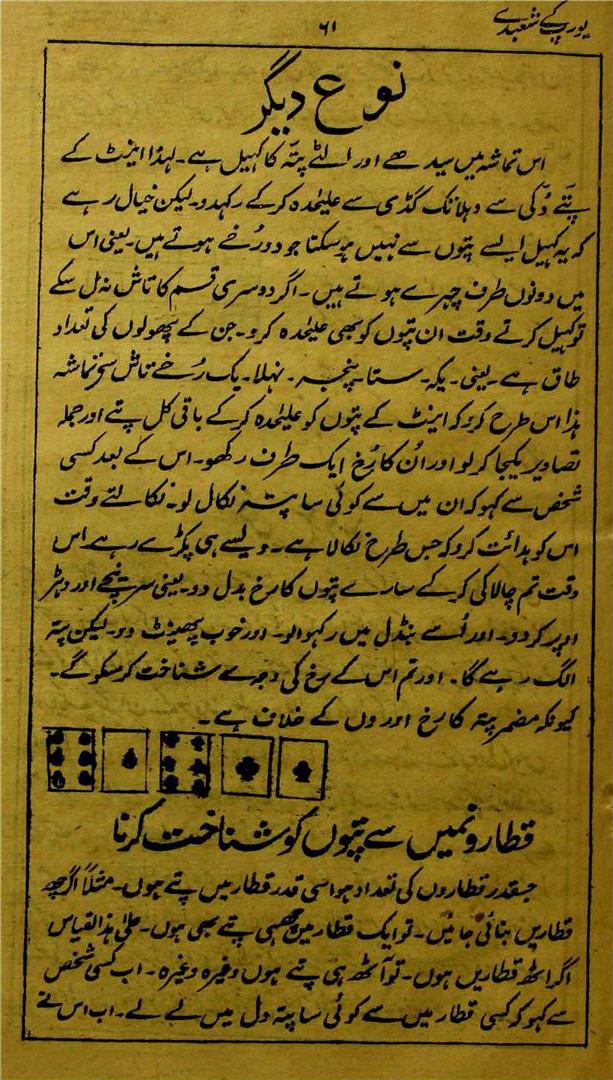 یورپ کے شعبدے
۶۱
نوع دیگر
اس تماشہ میں سیدھے اور الٹے پتّہ کا کہیل ہے۔ لہذا اینٹ کے
پتّے دُکّی سے دہلا تک گڈی سے علیٰحدہ کرکے رکہدو۔ لیکن خیال رہے
کہ یہ کہیل ایسے پتوں سے نہیں ہو سکتا جو دورُخے ہوتے ہیں۔ یعنی اس
میں دونوں طرف چہرے ہوتے ہیں۔ اگر دوسری قسم کا تاش نہ مل سکے
تو کہیل کرتے وقت ان پتوں کو بھی علیٰحدہ کرو۔ جن کے پھولوں کی تعداد
طاق ہے۔ یعنی۔ یکہ۔ ستا۔ پنجہ۔ نہلا۔ یک رُخے تاش سے تماشہ
ہذا اس طرح کرو کہ اینٹ کے پتوں کو علیٰحدہ کرکے باقی کل پتے اور جملہ
تصاویر یکجا کرلو اور اُن کا رُخ ایک طرف رکھو۔ اس کے بعد کسی
شخص سے کہو کہ ان میں سے کوئی سا پتہ نکال لو۔ نکالتے وقت
اس کو ہدائت کرو کہ جس طرح نکالا ہے۔ ویسے ہی پکڑے رہے اس
وقت تم چالاکی کرکے سارے پتوں کا رخ بدل دو۔ یعنی سر نیچے اور دہڑ
اوپر کردو۔ اور اُسے بنڈل میں رکہوالو۔ اور خوب پھینٹ دو۔ لیکن پتہ
الگ رہے گا۔ اور تم اس کے رخ کی وجہ سے شناخت کرسکو گے۔
کیونکہ مضمر پتہ کا رخ اوروں کے خلاف ہے۔
قطار و نمیں سے پتوں کو شناخت کرنا
جسقدر قطاروں کی تعداد ہو اسی قدر قطار میں پتے ہوں۔ مثلاً اگر چھ
قطاریں بنائی جائیں۔ تو ایک قطار میں چھہی پتے بھی ہوں۔ علیٰ ہذالقیاس
اگر اٹھ قطاریں ہوں۔ تو آٹھ ہی پتے ہوں وغیرہ وغیرہ۔ اب کسی شخص
سے کہو کہ کسی قطار میں سے کوئی سا پتہ دل میں لے لے۔ اب اس نے